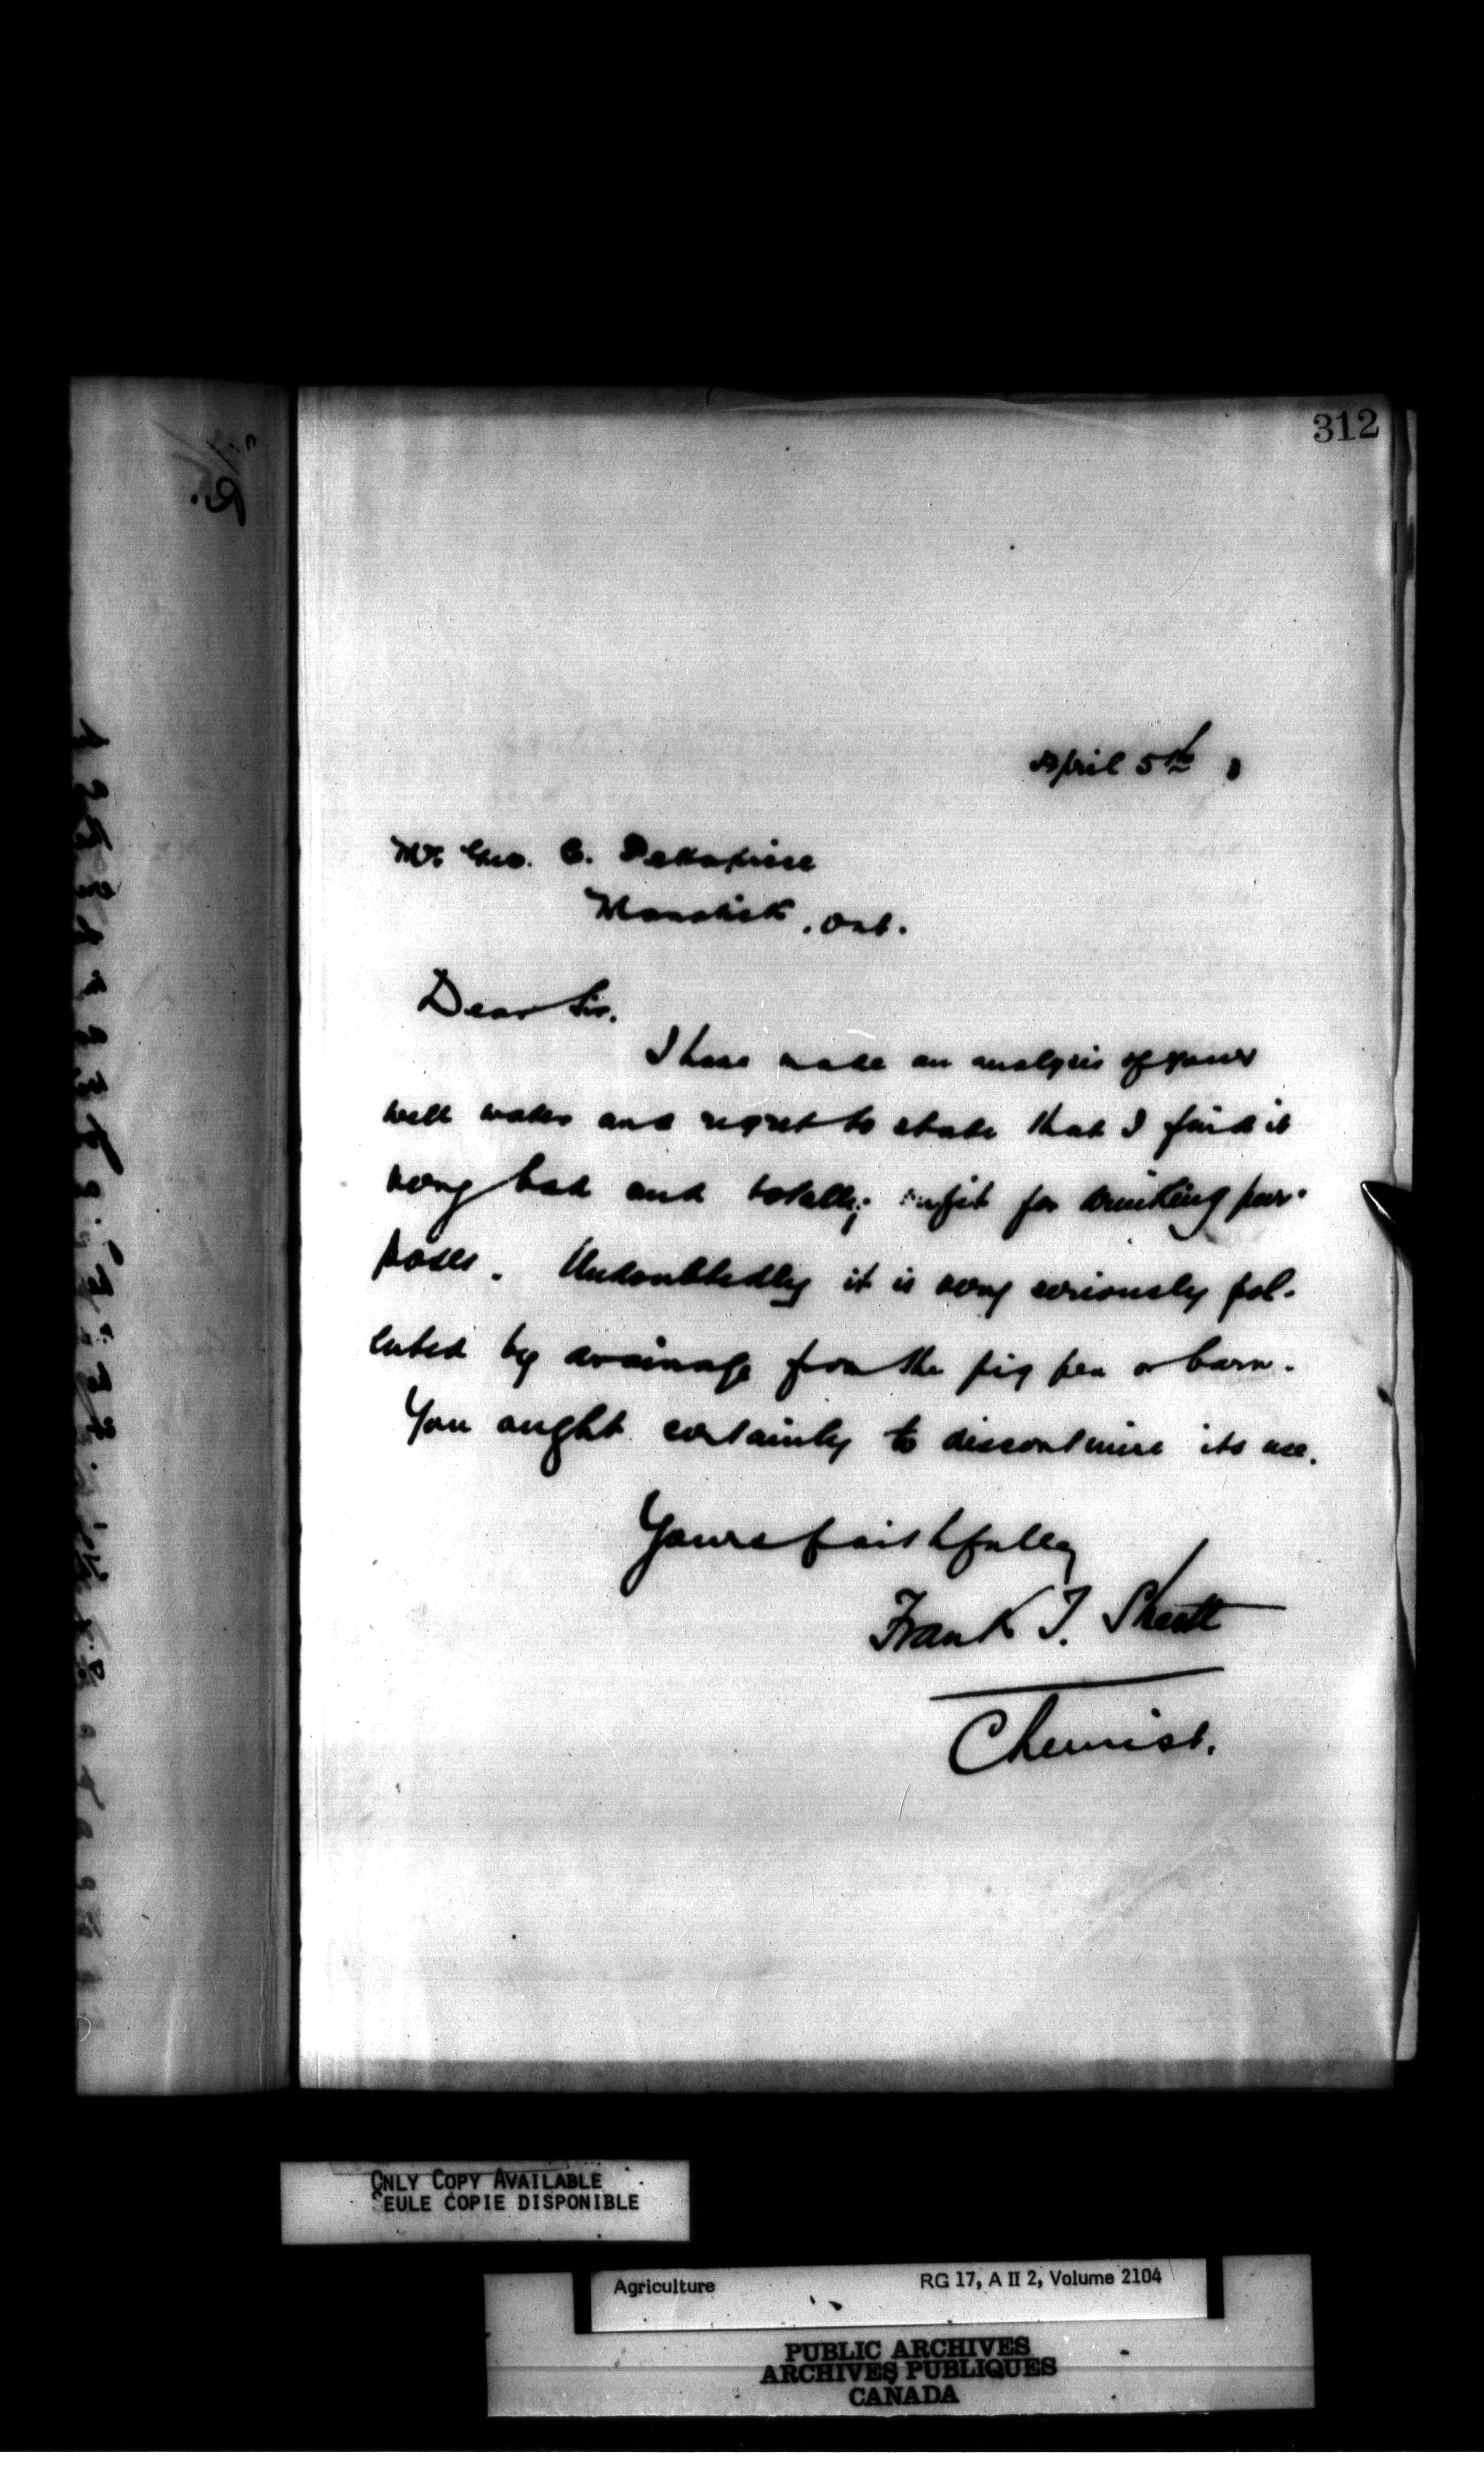 312
April 5th
Mr. Geo. C.
Manotick, Ont.
Dear Sir.
I have made an analysis of your
well water and regret to state that I find it
very bad and totally unfit for drinking pur-
poses. Undoubtedly it is very seriously pol-
luted by drainage from the pig pen or barn.
You ought certainly to discontinue its use.
Yours faithfully
Frank T. Shutt
Chemist.
ONLY COPY AVAILABLE
SEULE COPIE DISPONIBLE
Agriculture RG 17, A II 2, Volume 2104
PUBLIC ARCHIVES
ARCHIVES PUBLIQUES
CANADA